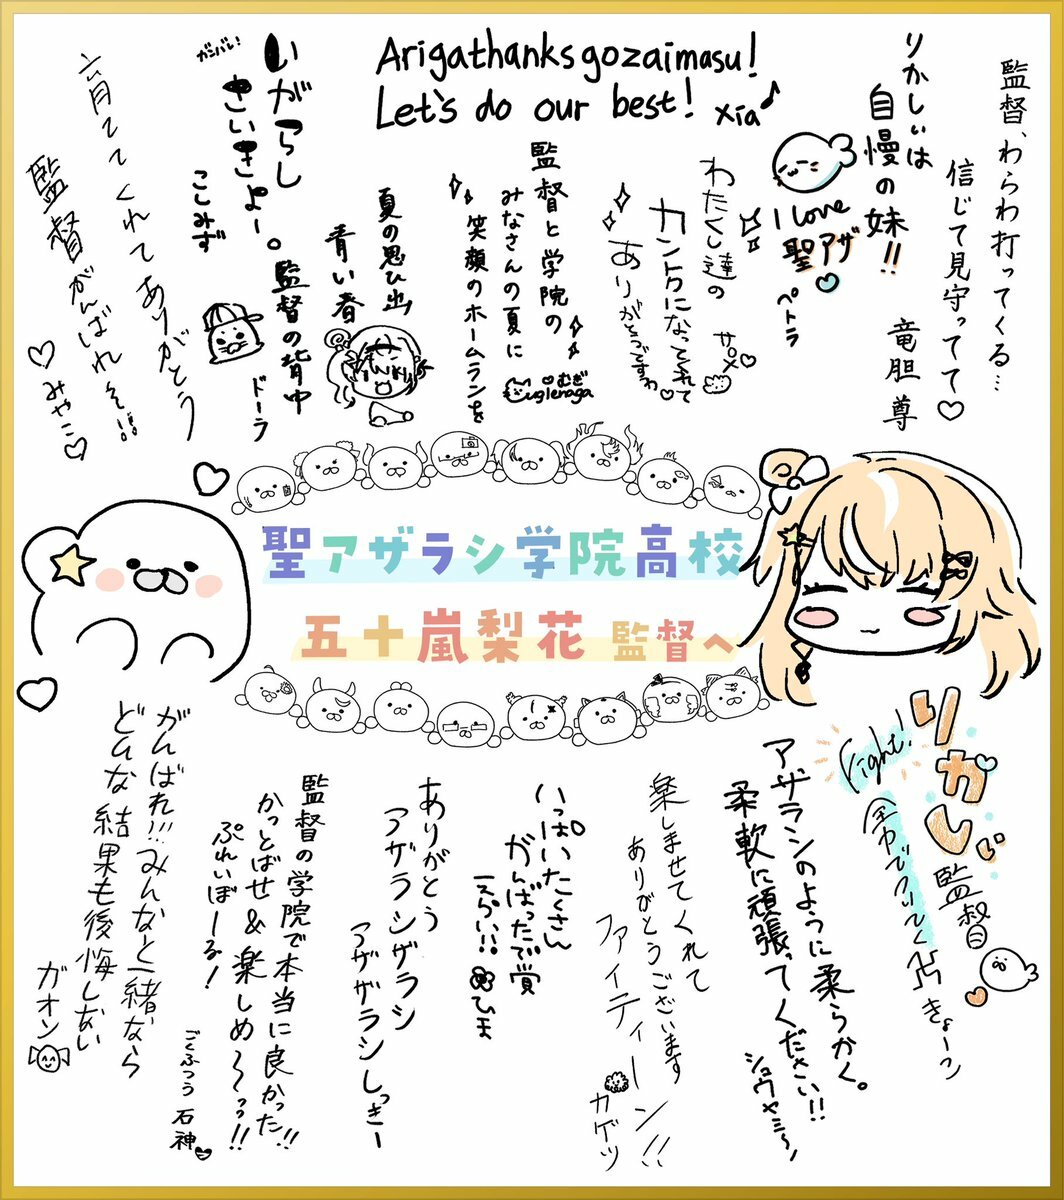 監督、わらわ打ってくる…
信じて見守ってて♡
竜胆尊
りかしぃは
自慢の妹!!
I love
聖アザ♡
ペトラ
Arigathanks gozaimasu!
Let's do our best! Xia♪
わたくし達の
カントクになってくれて
ありがとうですわ♡
サメ
監督と学院の
みなさんの夏に
笑顔のホームランを
むぎ
夏の思ひ出
青い春
監督の背中
ドーラ
いがらし
さいきょー。
ガンバレ!
こしみず
育ててくれてありがとう
監督がんばれそ!!
♡みやこ♡
聖アザラシ学院高校
五十嵐梨花 監督へ
りかしぃ監督
Fight!
全力でついてく
きょーこ
アザラシのように柔らかく。
柔軟に頑張ってください!!
楽しませてくれて
ありがとうございます
ファイティーン!!
カゲツ
いっぱいたくさん
がんばったで賞
えらい!! ひま
ありがとう
アザラシザラシ
アザザラシしっきー
監督の学院で本当に良かった!!
かっとばせ&楽しめ〜〜っっ!!
ぷれいぼーる!
ごくふつう 石神
がんばれ!!!みんなと一緒なら
どんな結果も後悔しない
ガオン